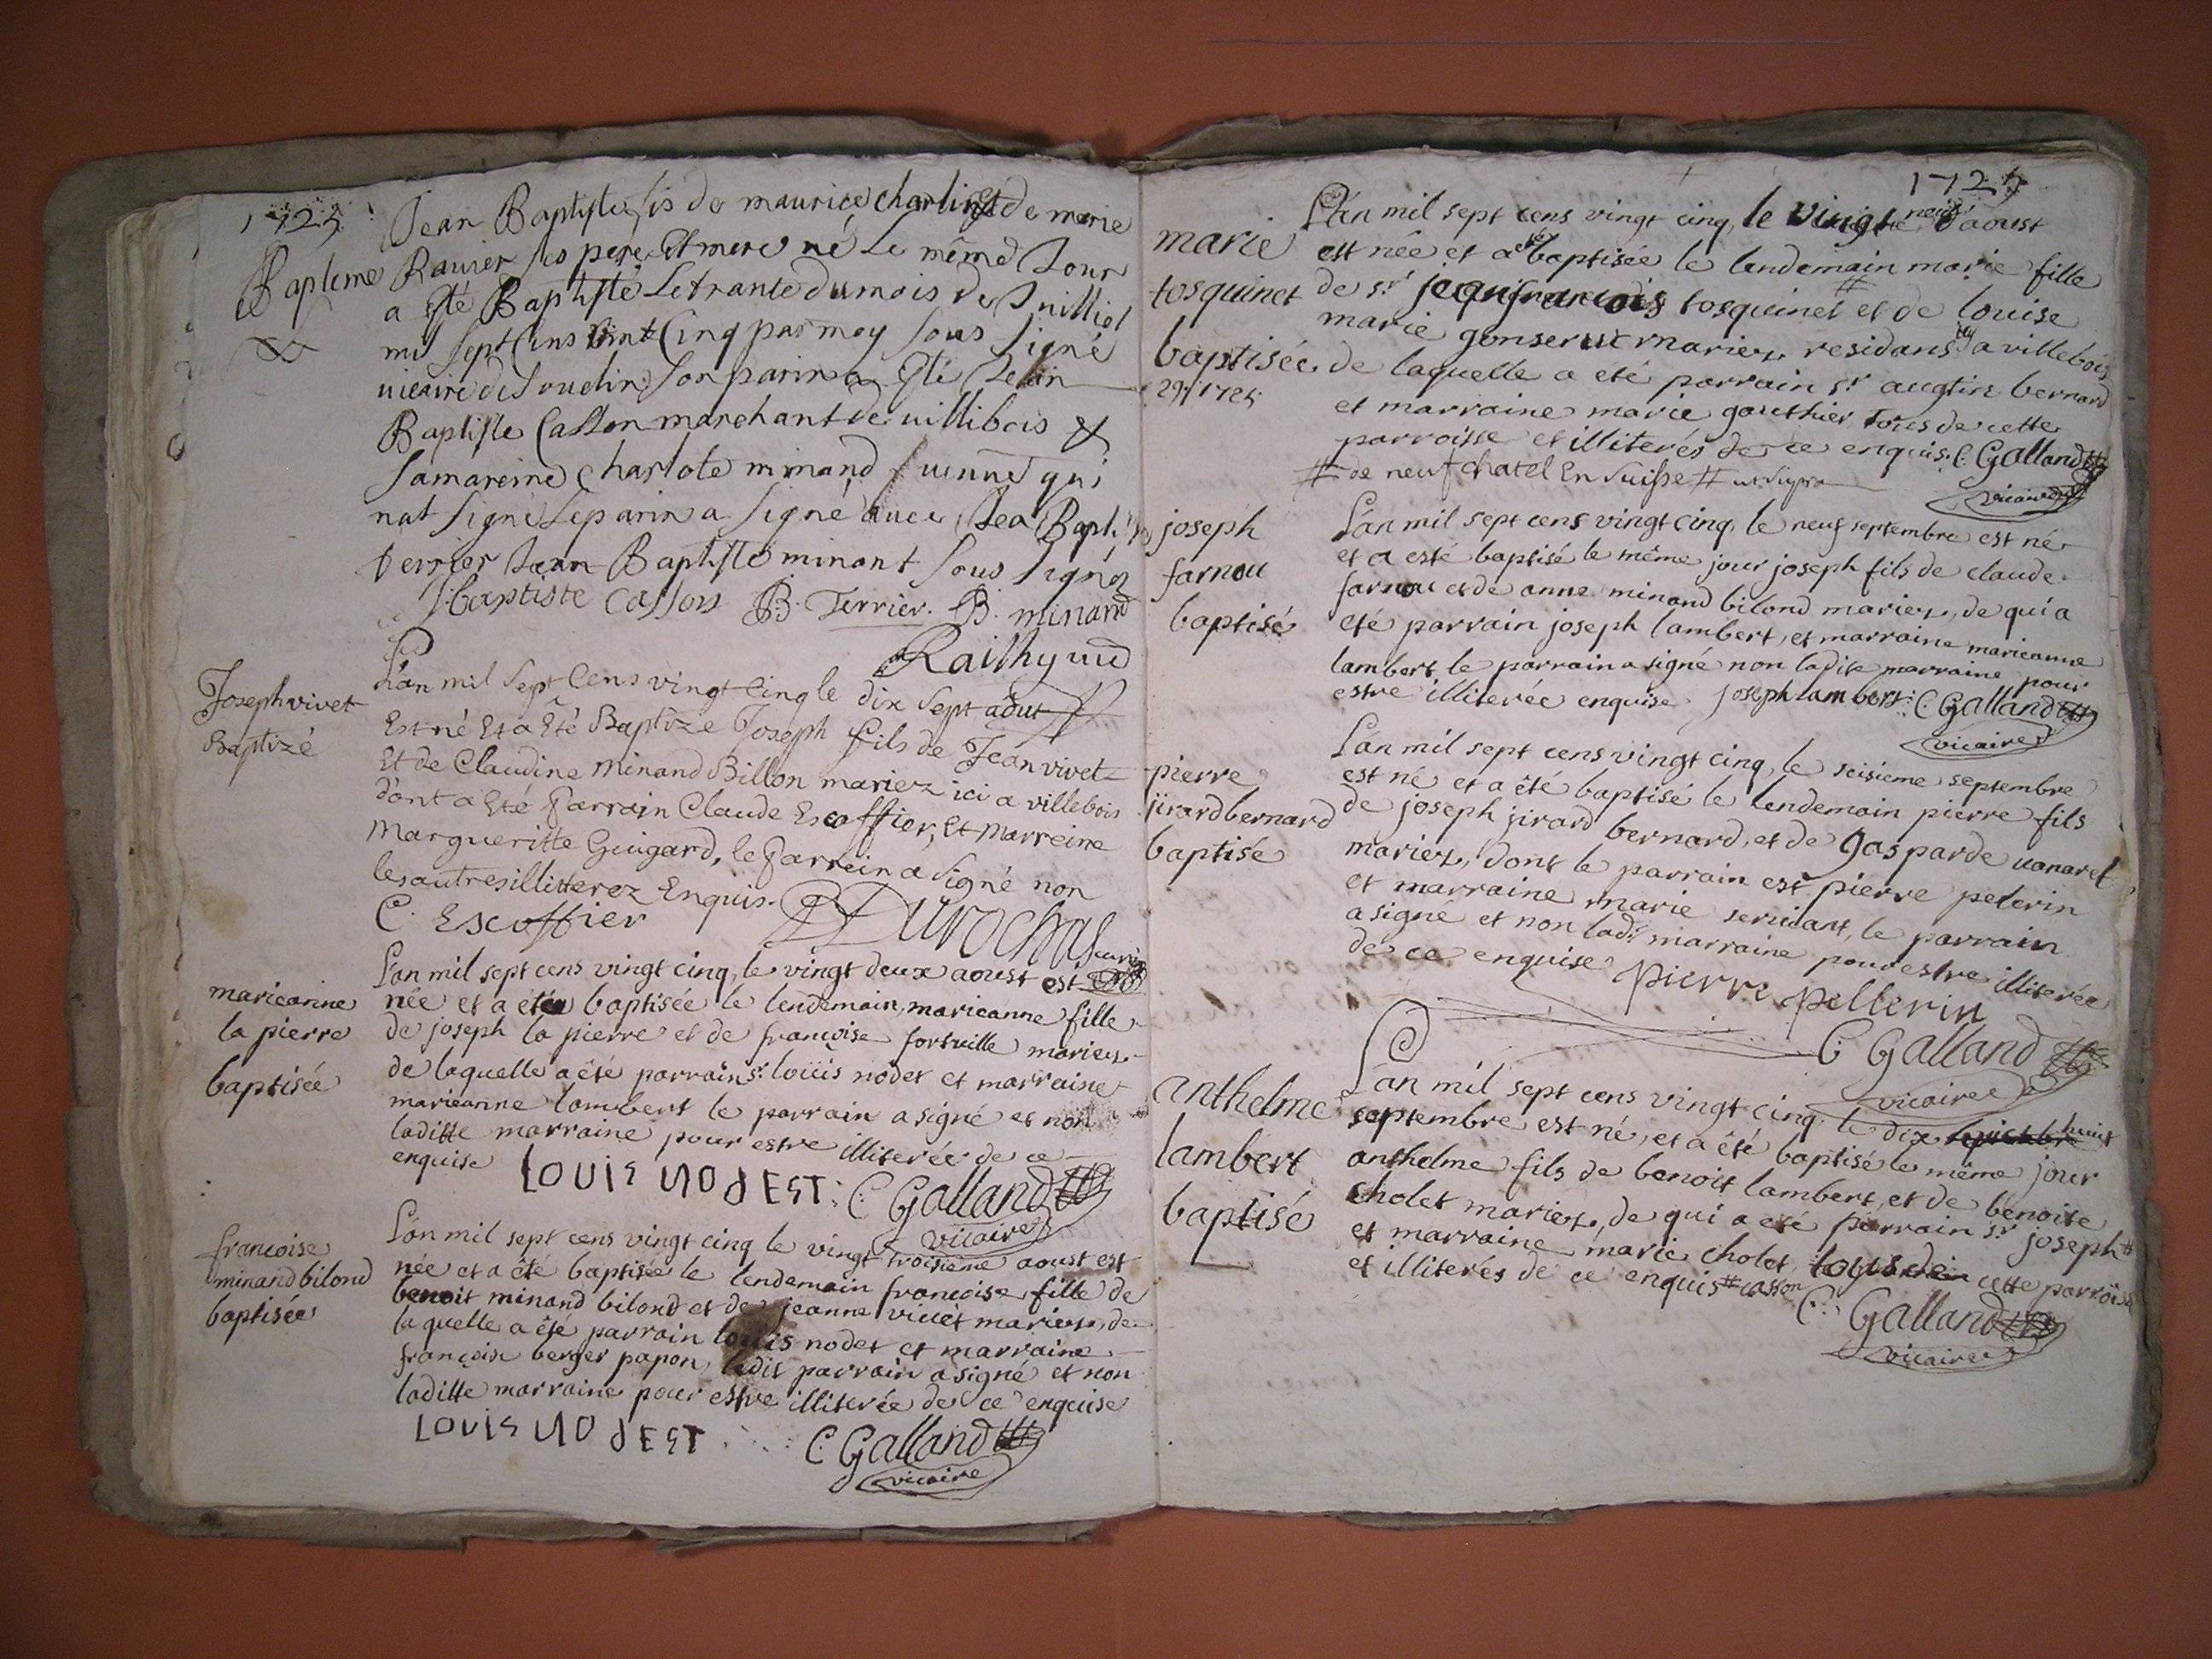 1725
Bapteme
Jean Baptiste fis de maurice charlin Et de marie
Ravier ses pere Et mere né Le même Jour
a Eté Baptisté Le trante du mois de Juilliet
mil sept Cens vint Cinq par moy sous signé
vicaire de Soudin son parin a Eté Jean
Baptiste Casson marchant de villibois &
sa mareine charlote minand qui
nat signé Le parin a signé avec Jea Bapt.
terrier Jean Baptiste minant sous signéz
J. baptiste Casson B. Terrier. B. minand
Railhy
Joseph vivet
Baptizé
L'an mil sept Cens vingt Cinq le dix sept aôut
Est né Et a Eté Baptize Joseph fils de Jean vivet
Et de Claudine Minand Billon mariez ici a villebois
dont a Eté Parrain Claude Escoffier, Et Marreine
Margueritte Guigard, le Parrein a signé non
les autres illitterez Enquis.
C. Escoffier Durochat curé
marieanne
la pierre
baptisée
L'an mil sept cens vingt cinq, le vingt deux aoust est
née et a été baptisée le lendemain, marieanne fille
de joseph la pierre et de françoise fortville mariez
de laquelle a été parrain sr. loüis nodet et marraine
marieanne lambert le parrain a signé et non
laditte marraine pour estre illiterée de ce
enquise LOUIS NOdEST : C Galland
vicaire
francoise
minand bilond
baptisée
L'an mil sept cens vingt cinq le vingt troisieme aoust est
née et a été baptisée le lendemain francoise fille de
benoit minand bilond et de jeanne viviet mariez, de
laquelle a été parrain louis nodet et marraine
françoise berger papon, ledit parrain a signé et non
laditte marraine pour estre illiterée de ce enquise
LOUIS NOdEST C Galland
vicaire
1725
marie
tosquinet
baptisée
29 1725
L'an mil sept cens vingt cinq, le vingt neuf d'aoust
est née et a été baptisée le lendemain marie fille
de sr. jean francois tosquinet # et de louise
marie gonseru mariez, residans a villebois
de laquelle a eté parrain sr. augtin bernard
et marraine marie gouthier, tous de cette
parroisse et illiterés de ce enquis. C. Galland
# de neufchatel En Suisse # ut supra
vicaire
joseph
farnou
baptisé
L'an mil sept cens vingt cinq, le neuf septembre est né
et a esté baptisé le même jour joseph fils de claude
farnou et de anne minand bilond mariez, de qui a
eté parrain joseph lambert, et marraine marieanne
lambert, le parrain a signé non ladite marraine pour
estre illiterée enquise. joseph lambert : C Galland
vicaire
pierre
jirard bernard
baptisé
L'an mil sept cens vingt cinq, le seisieme septembre
est né et a été baptisé le lendemain pierre fils
de joseph jirard bernard, et de gasparde vanarel
mariez, dont le parrain est pierre pelerin
et marraine marie servidant, le parrain
a signé et non lade marraine pour estre illiterée
de ce enquise Pierre Pellerin
C Galland
vicaire
anthelme
lambert
baptisé
L'an mil sept cens vingt cinq, le dix huit
septembre est né, et a été baptisé le même jour
anthelme fils de benoit lambert, et de benoite
cholet mariez, de qui a eté parrain sr. joseph #
et marraine marie cholet, tous de cette parroisse
et illiterés de ce enquis # casson
C. Galland
vicaire